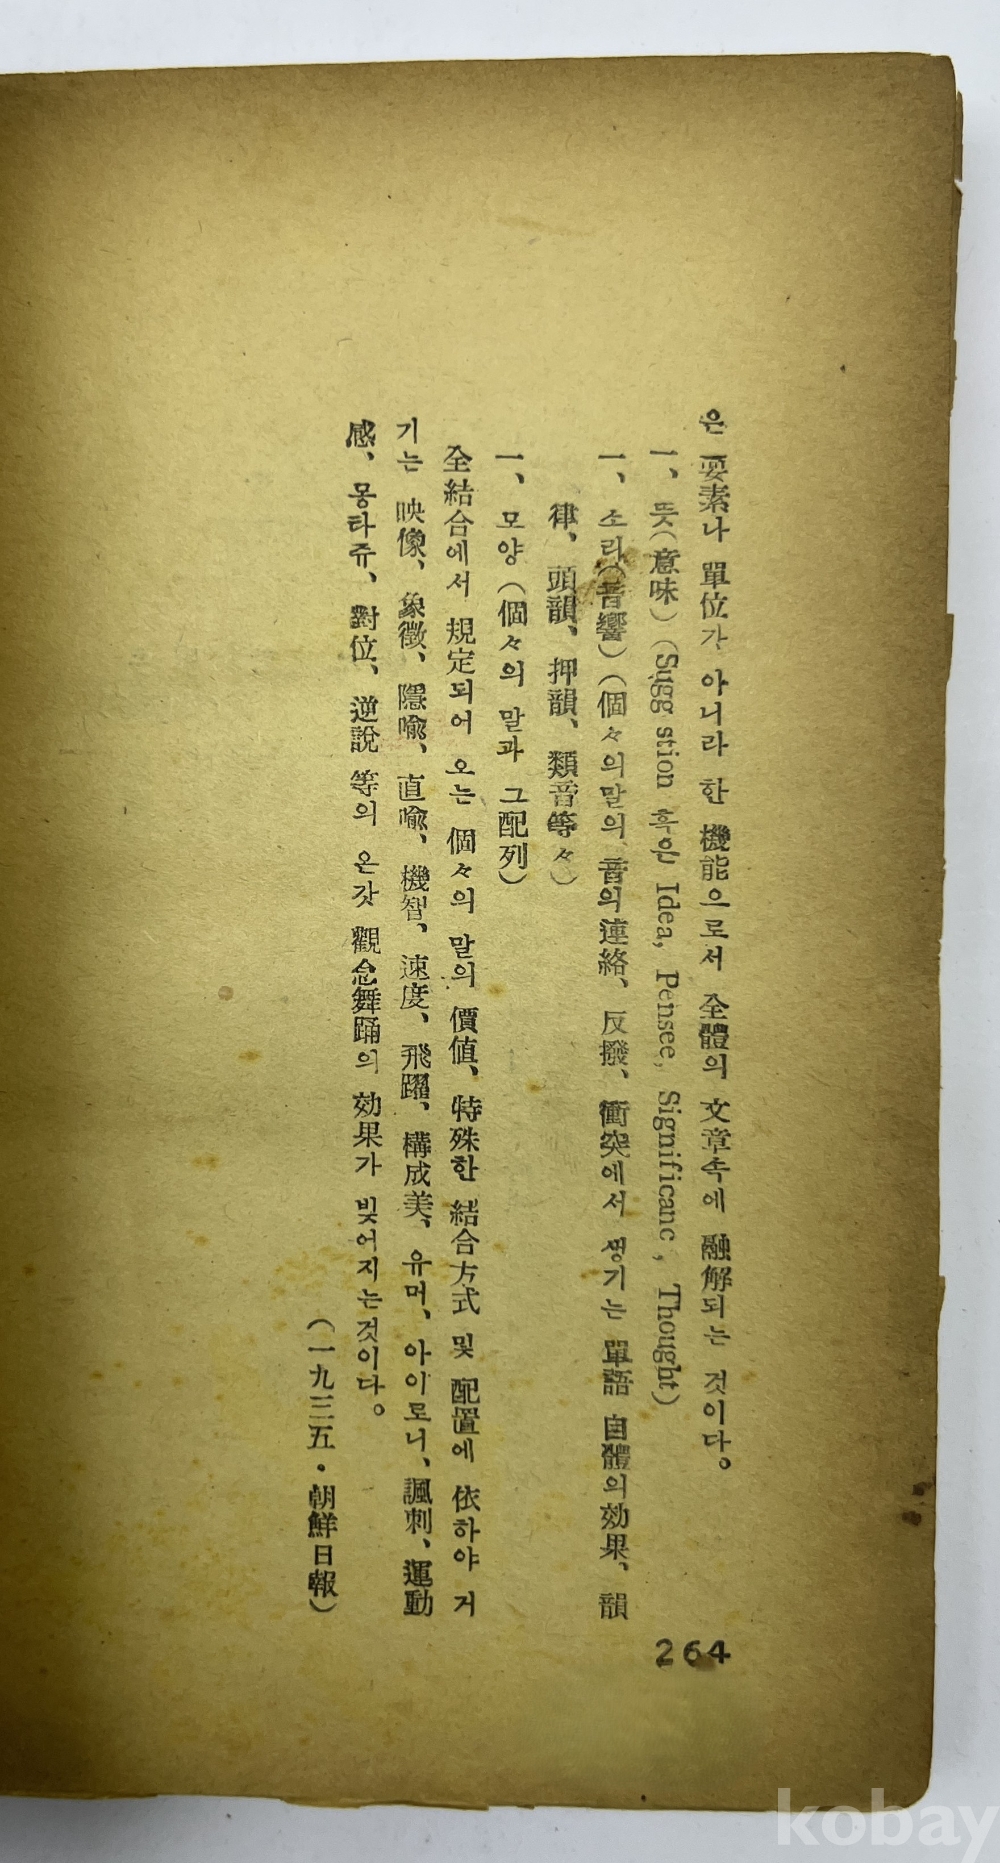 은 要素나 單位가 아니라 한 機能으로서 全體의 文章속에 融解되는 것이다。
一、뜻(意味)(Sugg stion 혹은 Idea, Pensee, Significanc , Thought)
一、소리(音響)(個々의말의 音의連絡、反撥、衝突에서 생기는 單語 自體의効果、韻
律、頭韻、押韻、類音等々)
一、모양(個々의 말과 그配列)
全結合에서 規定되어 오는 個々의 말의 價値、特殊한 結合方式 및 配置에 依하야 거
기는 映像、象徵、隱喩、直喩、機智、速度、飛躍、構成美、유머、아이로니、諷刺、運動
感、몽타쥬、對位、逆說 等의 온갖 觀念舞踊의 効果가 빚어지는것이다。
(一九三五・朝鮮日報)
264
kobay